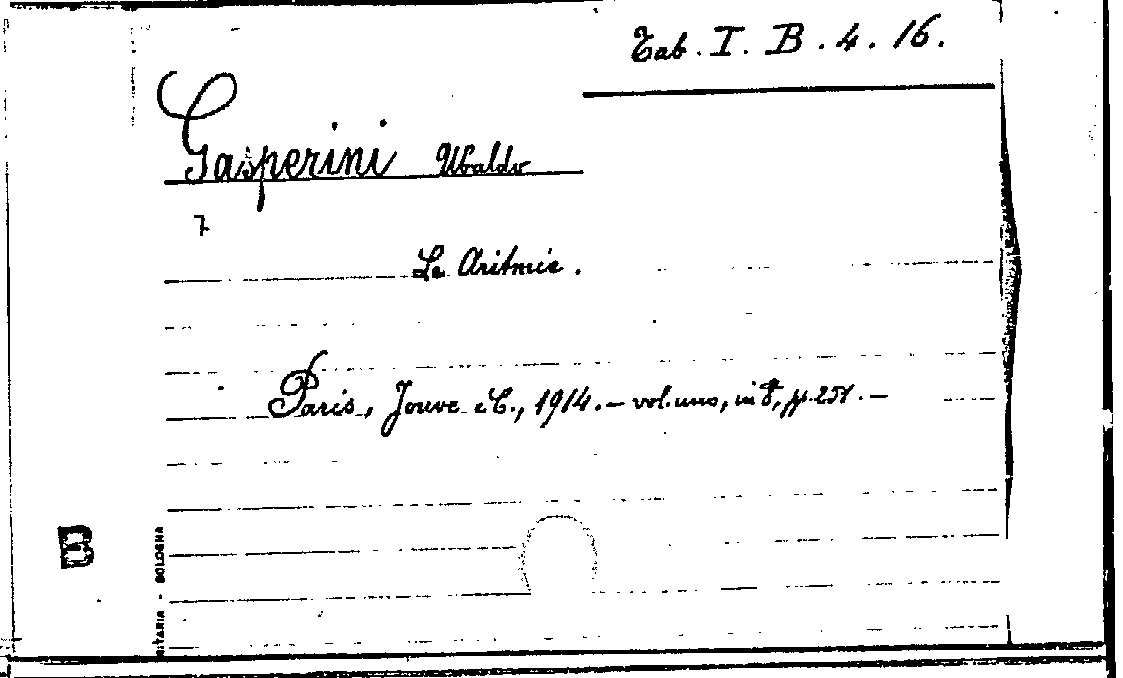 Tab. I. B. 4. 16.
Gasperini Ubaldo
7
Le Aritmie.
Paris, Jouve e C., 1914. – vol. uno, in 8°, pp. 251. –
B
RITARIA - BOLOGNA